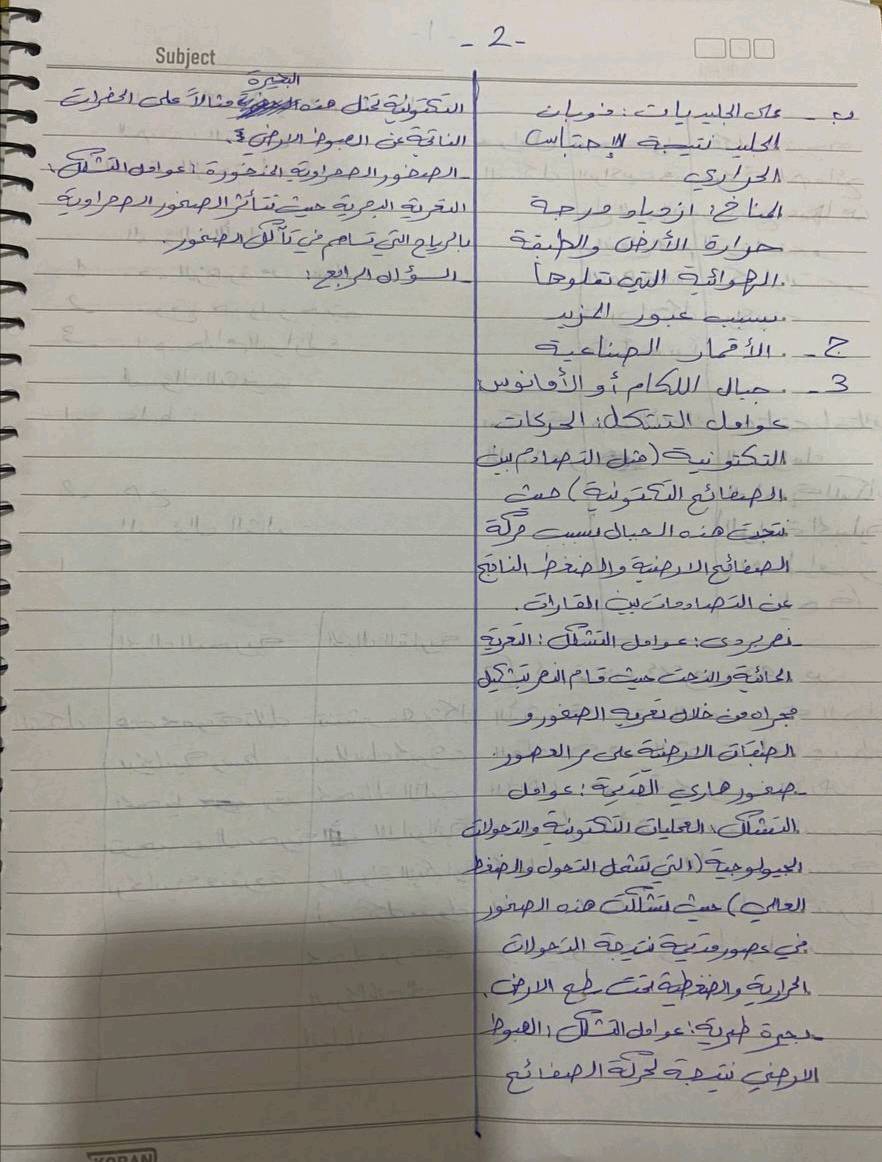 - 2 -
Subject
ب - على الجليديات: ذوبان
الجليد نتيجة الإحتباس
الحراري
المناخ: ازدياد درجة
حرارة الأرض والطبقة
الهوائية التي تعلوها
بسبب عبور المزيد
ج - الأقمار الصناعية
3 - جبال اللكام أو الأمانوس:
عوامل التشكل: الحركات
التكتونية (مثل التصادم بين
الصفائح التكتونية) حيث
نتجت هذه الجبال بسبب حركة
الصفائح الارضية والضغط الناتج
عن التصادمات بين القارات.
- نهر بردى: عوامل التشكل: التعرية
المائية والنحت حيث قام النهر بتشكيل
مجراه من خلال تعرية الصخور و
الطبقات الارضية على مر العصور.
- صخور هاري القديمة: عوامل
التشكل: العمليات التكتونية والتحولات
الجيولوجية (التي تشمل التحول والضغط
العالي) حيث تشكلت هذه الصخور
في عصور قديمة نتيجة التحولات
الحرارية والضغطية تحت سطح الارض.
- بحيرة طبرية: عوامل التشكل: الهبوط
الارضي نتيجة لحركة الصفائح
البحيرة
التكتونية تمثل هذه مثالاً على الحفرات
الناتجة عن الهبوط الارضي.
- الصخور الصحراوية المنخورة: عوامل التشكل:
التعرية الريحية حيث تتأثر الصخور الصحراوية
بالرياح التي تساهم في تآكل الصخور.
- السؤال الرابع:
KORAN